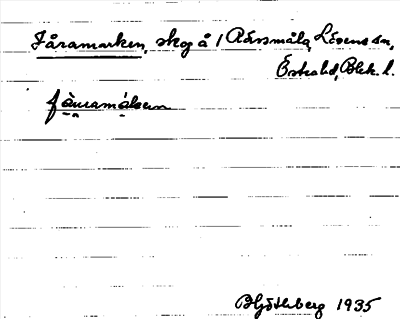 Fåramarken, skog å 1 Rävsmåla, Lösens sn,
Östra hd, Blek. l.
fåuramárken
B Hjöthberg 1935